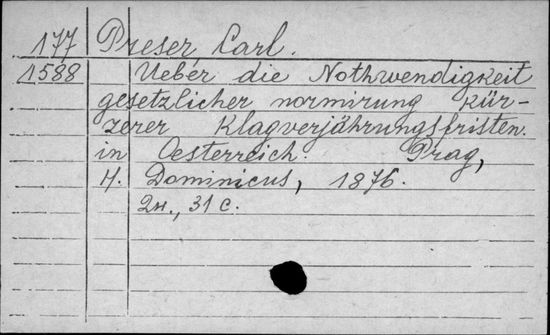 177 Preser, Carl.
1588 Ueber die Nothwendigkeit
gesetzlicher normirung kür-
zerer Klagverjährungsfristen.
in Oesterreich. Prag,
H. Dominicus, 1876.
2н., 31 c.